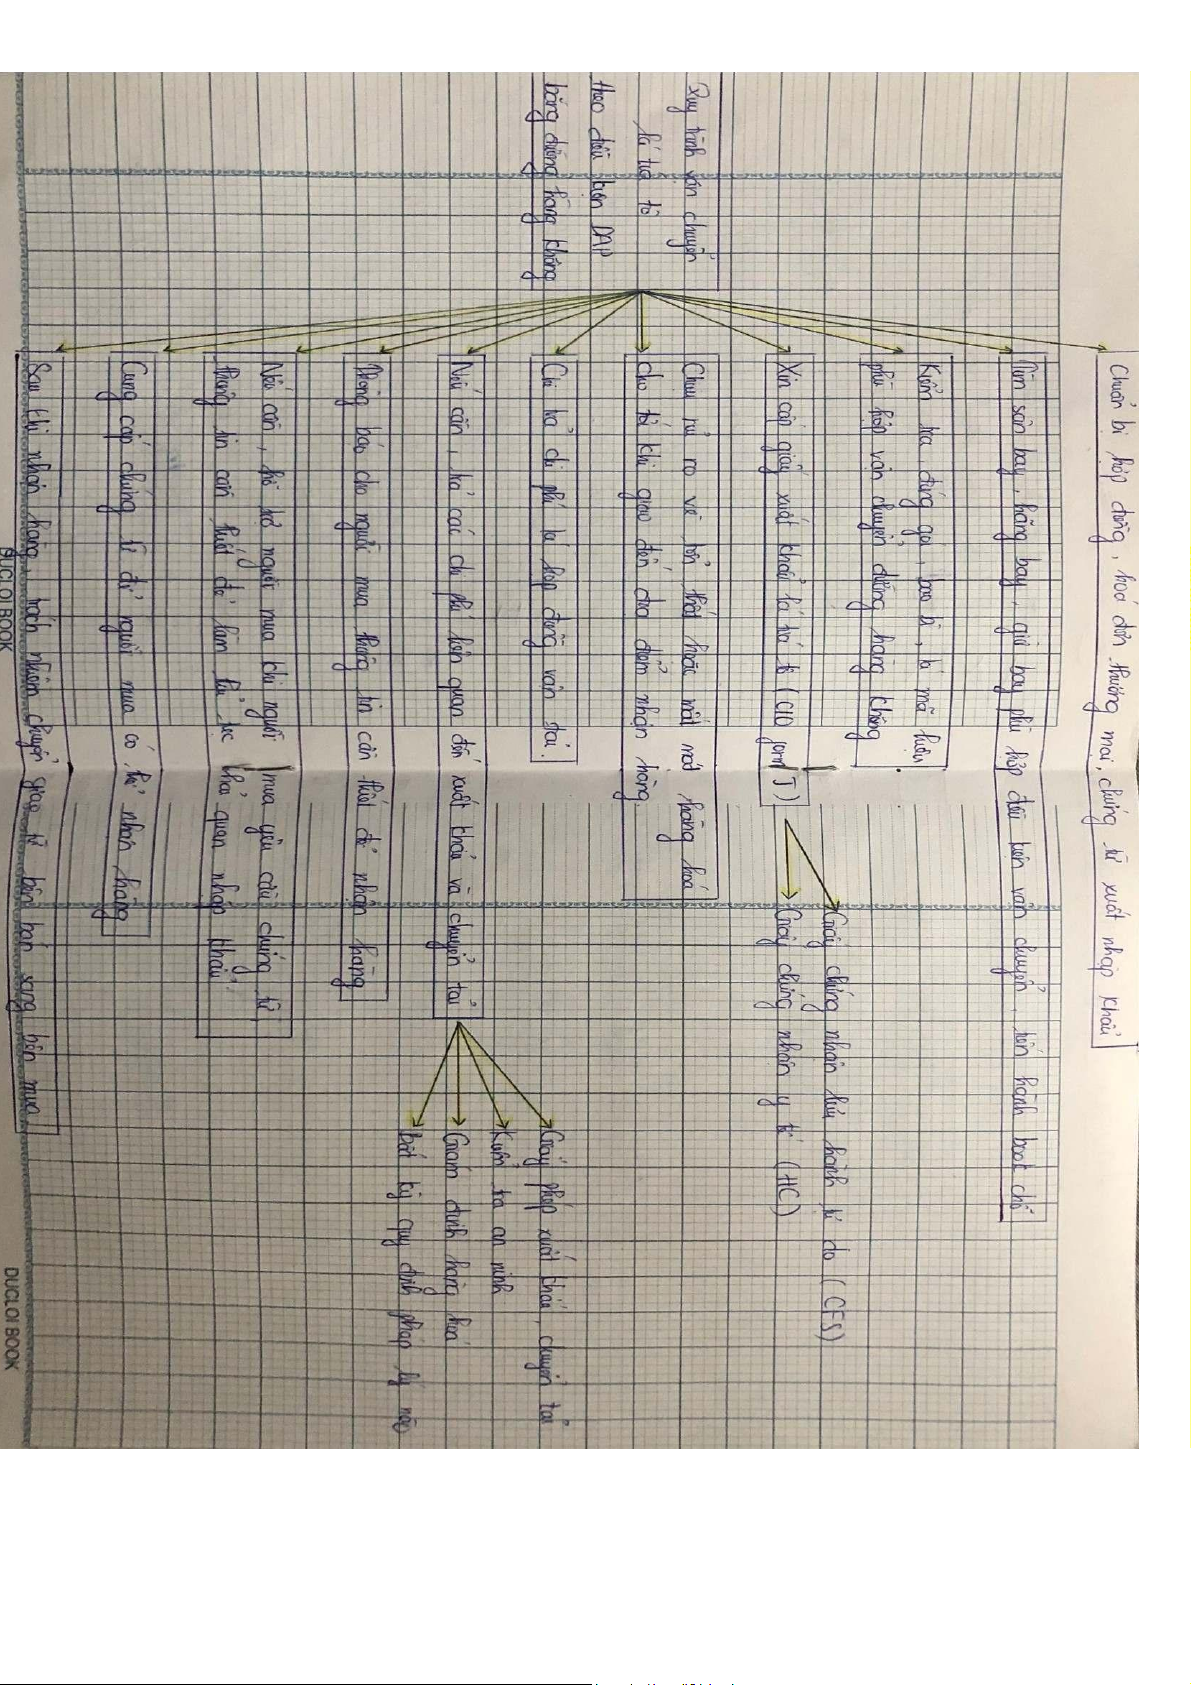 Quy trình vận chuyển
lá tía tô
theo điều kiện DAP
bằng đường hàng không
Chuẩn bị hợp đồng, hoá đơn thương mại, chứng từ xuất nhập khẩu
Tìm sân bay, hãng bay, giờ bay phù hợp điều kiện vận chuyển, tiến hành book chỗ
Kiểm tra đóng gói, bao bì, kí mã hiệu
phù hợp vận chuyển đường hàng không
Xin cấp giấy xuất khẩu lá tía tô (C/O form J)
Giấy chứng nhận lưu hành tự do (CFS)
Giấy chứng nhận y tế (HC)
Chịu rủi ro về tổn thất hoặc mất mát hàng hoá
cho tới khi giao đến địa điểm nhận hàng.
Chi trả chi phí kí hợp đồng vận tải.
Nếu cần, trả các chi phí liên quan đến xuất khẩu và chuyển tải
Giấy phép xuất khẩu, chuyển tải
Kiểm tra an ninh
Giám định hàng hoá
Bất kỳ quy định pháp lý nào
Thông báo cho người mua thông tin cần thiết để nhận hàng
Nếu cần, hỗ trợ người mua khi người mua yêu cầu chứng từ,
thông tin cần thiết để làm thủ tục thông quan nhập khẩu.
Cung cấp chứng từ để người mua có thể nhận hàng
Sau khi nhận hàng, trách nhiệm chuyển giao từ bên bán sang bên mua.
DUCLOI BOOK
DUCLOI BOOK